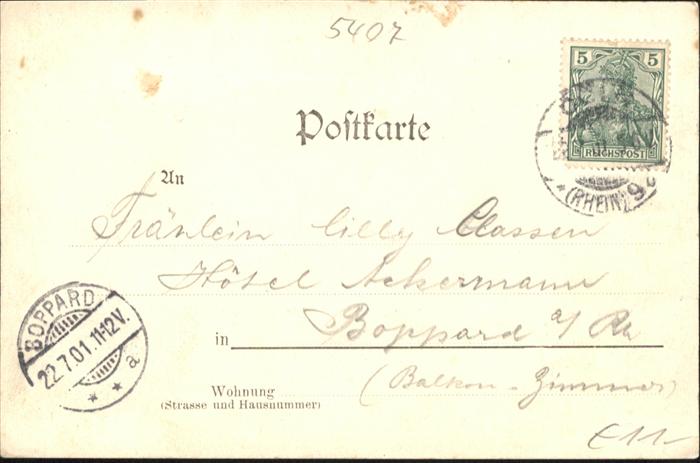 5407
5 5
REICHSPOST
(RHEIN) 9
Postkarte
An
Fräulein Lilly Classen
Hôtel Ackermann
in Boppard a/Rh
(Balkon-Zimmer)
Wohnung
(Strasse und Hausnummer)
BOPPARD
22.7.01.11-12V.
* * a
E11